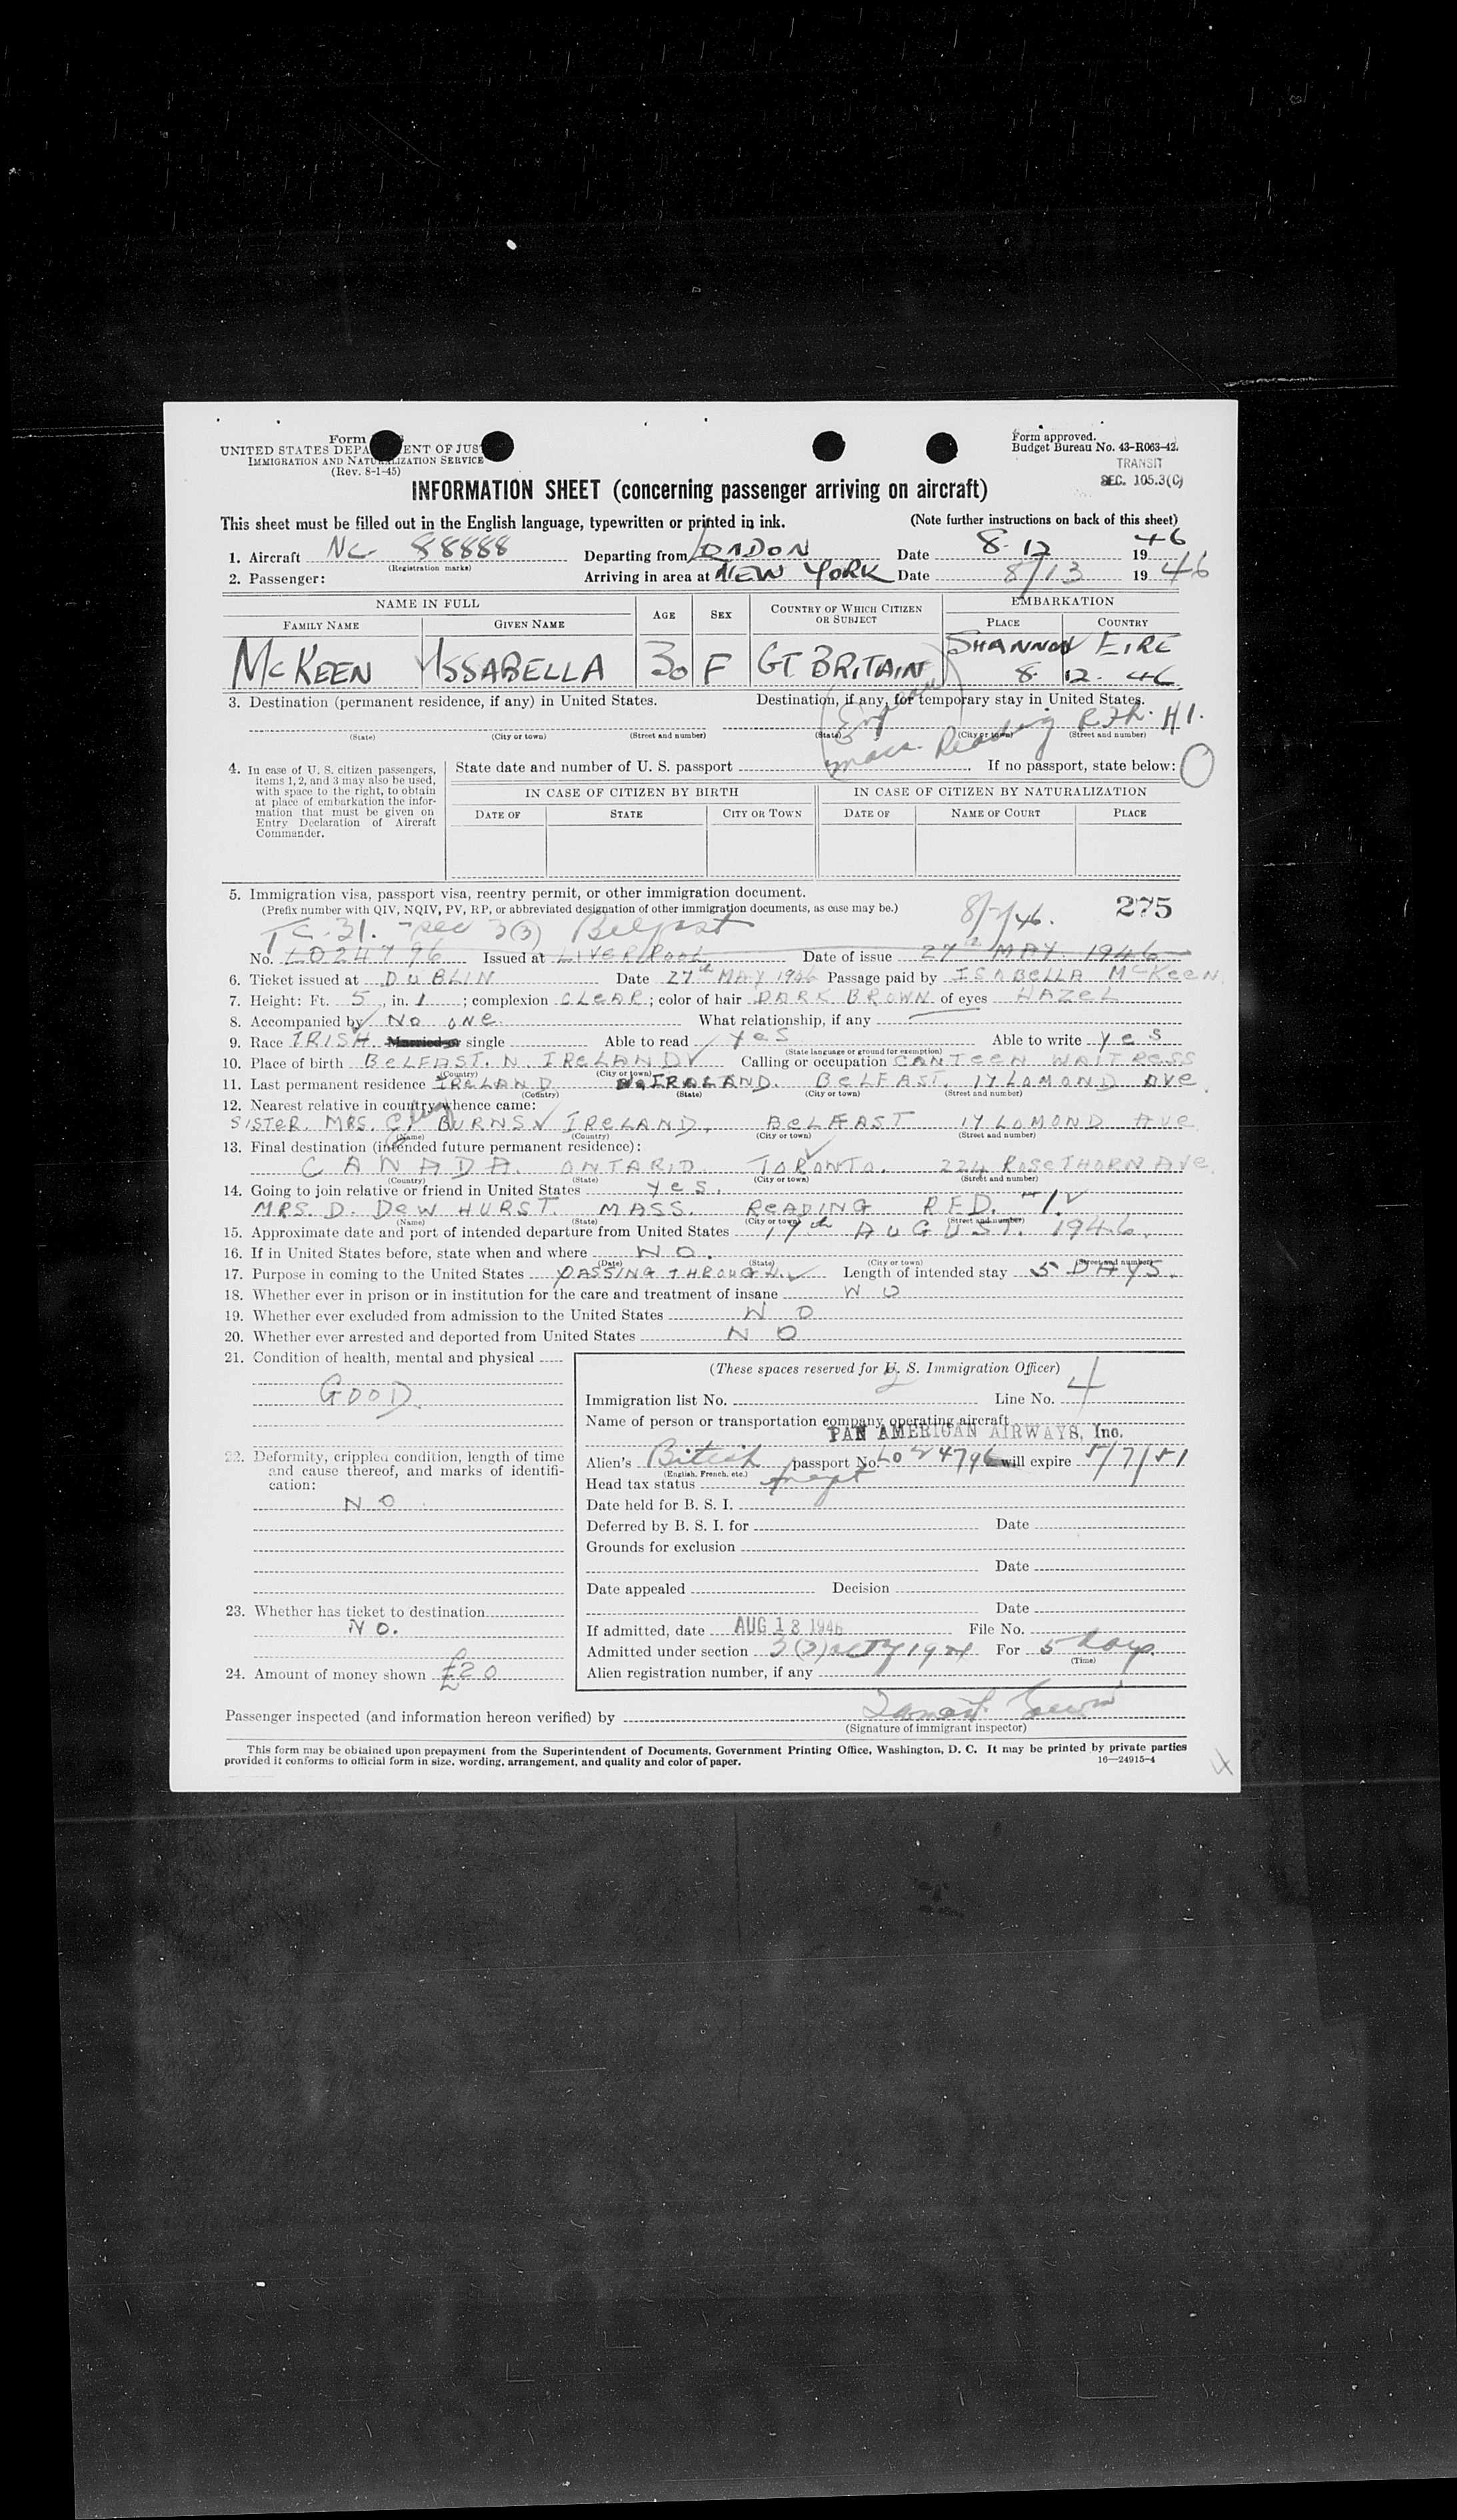 Form
UNITED STATES DEPA ENT OF JUS
IMMIGRATION AND NATURALIZATION SERVICE
(Rev. 8-1-45)
Form approved.
Budget Bureau No. 43-R063-42.
TRANSIT
SEC. 105.3(C)
INFORMATION SHEET (concerning passenger arriving on aircraft)
This sheet must be filled out in the English language, typewritten or printed in ink. (Note further instructions on back of this sheet)
1. Aircraft NC 88888 Departing from LONDON Date 8-12 1946
(Registration marks)
2. Passenger: Arriving in area at NEW YORK Date 8/13 1946
NAME IN FULL AGE SEX COUNTRY OF WHICH CITIZEN OR SUBJECT EMBARKATION
FAMILY NAME GIVEN NAME PLACE COUNTRY
McKEEN ISSABELLA 30 F GT BRITAIN SHANNON EIRE
8. 12. 46
3. Destination (permanent residence, if any) in United States. Destination, if any, for temporary stay in United States.
Mass. Reading R.F.D. #1.
(State) (City or town) (Street and number) (State) (City or town) (Street and number)
4. In case of U. S. citizen passengers, items 1, 2, and 3 may also be used, with space to the right, to obtain at place of embarkation the information that must be given on Entry Declaration of Aircraft Commander.
State date and number of U. S. passport If no passport, state below:
IN CASE OF CITIZEN BY BIRTH IN CASE OF CITIZEN BY NATURALIZATION
DATE OF STATE CITY OR TOWN DATE OF NAME OF COURT PLACE
5. Immigration visa, passport visa, reentry permit, or other immigration document.
(Prefix number with QIV, NQIV, PV, RP, or abbreviated designation of other immigration documents, as case may be.)
275
TC. 31. - sec 3(3) Belfast 8/7/46.
No. LO24796 Issued at LIVERPOOL Date of issue 27th MAY. 1946
6. Ticket issued at DUBLIN Date 27th MAY 1946 Passage paid by ISABELLA McKEEN
7. Height: Ft. 5, in. 1; complexion CLEAR; color of hair DARK BROWN of eyes HAZEL
8. Accompanied by NO ONE What relationship, if any
9. Race IRISH Married or single Able to read YES Able to write YES
(State language or ground for exemption)
10. Place of birth BELFAST. N. IRELAND Calling or occupation CANTEEN WAITRESS
(Country) (City or town)
11. Last permanent residence IRELAND IRELAND. BELFAST. 17 LOMOND AVE.
(Country) (State) (City or town) (Street and number)
12. Nearest relative in country whence came:
SISTER. MRS. C. BURNS IRELAND, BELFAST 17 LOMOND AVE
(Name) (Country) (City or town) (Street and number)
13. Final destination (intended future permanent residence):
CANADA. ONTARIO. TORONTO. 224 ROSETHORN AVE.
(Country) (State) (City or town) (Street and number)
14. Going to join relative or friend in United States YES.
MRS. D. DEWHURST. MASS. READING R.F.D. 1.
(Name) (State) (City or town) (Street and number)
15. Approximate date and port of intended departure from United States 17th AUGUST. 1946.
16. If in United States before, state when and where NO.
(Date) (State) (City or town) (Street and number)
17. Purpose in coming to the United States PASSING THROUGH. Length of intended stay 5 DAYS.
18. Whether ever in prison or in institution for the care and treatment of insane NO
19. Whether ever excluded from admission to the United States NO
20. Whether ever arrested and deported from United States NO
21. Condition of health, mental and physical
GOOD.
22. Deformity, crippled condition, length of time and cause thereof, and marks of identification:
NO
23. Whether has ticket to destination
NO.
24. Amount of money shown £20
(These spaces reserved for U. S. Immigration Officer)
Immigration list No. 2 Line No. 4
Name of person or transportation company operating aircraft
PAN AMERICAN AIRWAYS, Inc.
Alien's British passport No. LO24796 will expire 5/7/51
(English, French, etc.)
Head tax status
Date held for B. S. I.
Deferred by B. S. I. for Date
Grounds for exclusion
Date
Date appealed Decision
Date
If admitted, date AUG 13 1946 File No.
Admitted under section 3(3) act of 1924 For 5 days.
(Time)
Alien registration number, if any
Passenger inspected (and information hereon verified) by
(Signature of immigrant inspector)
This form may be obtained upon prepayment from the Superintendent of Documents, Government Printing Office, Washington, D. C. It may be printed by private parties
provided it conforms to official form in size, wording, arrangement, and quality and color of paper. 16—24915-4